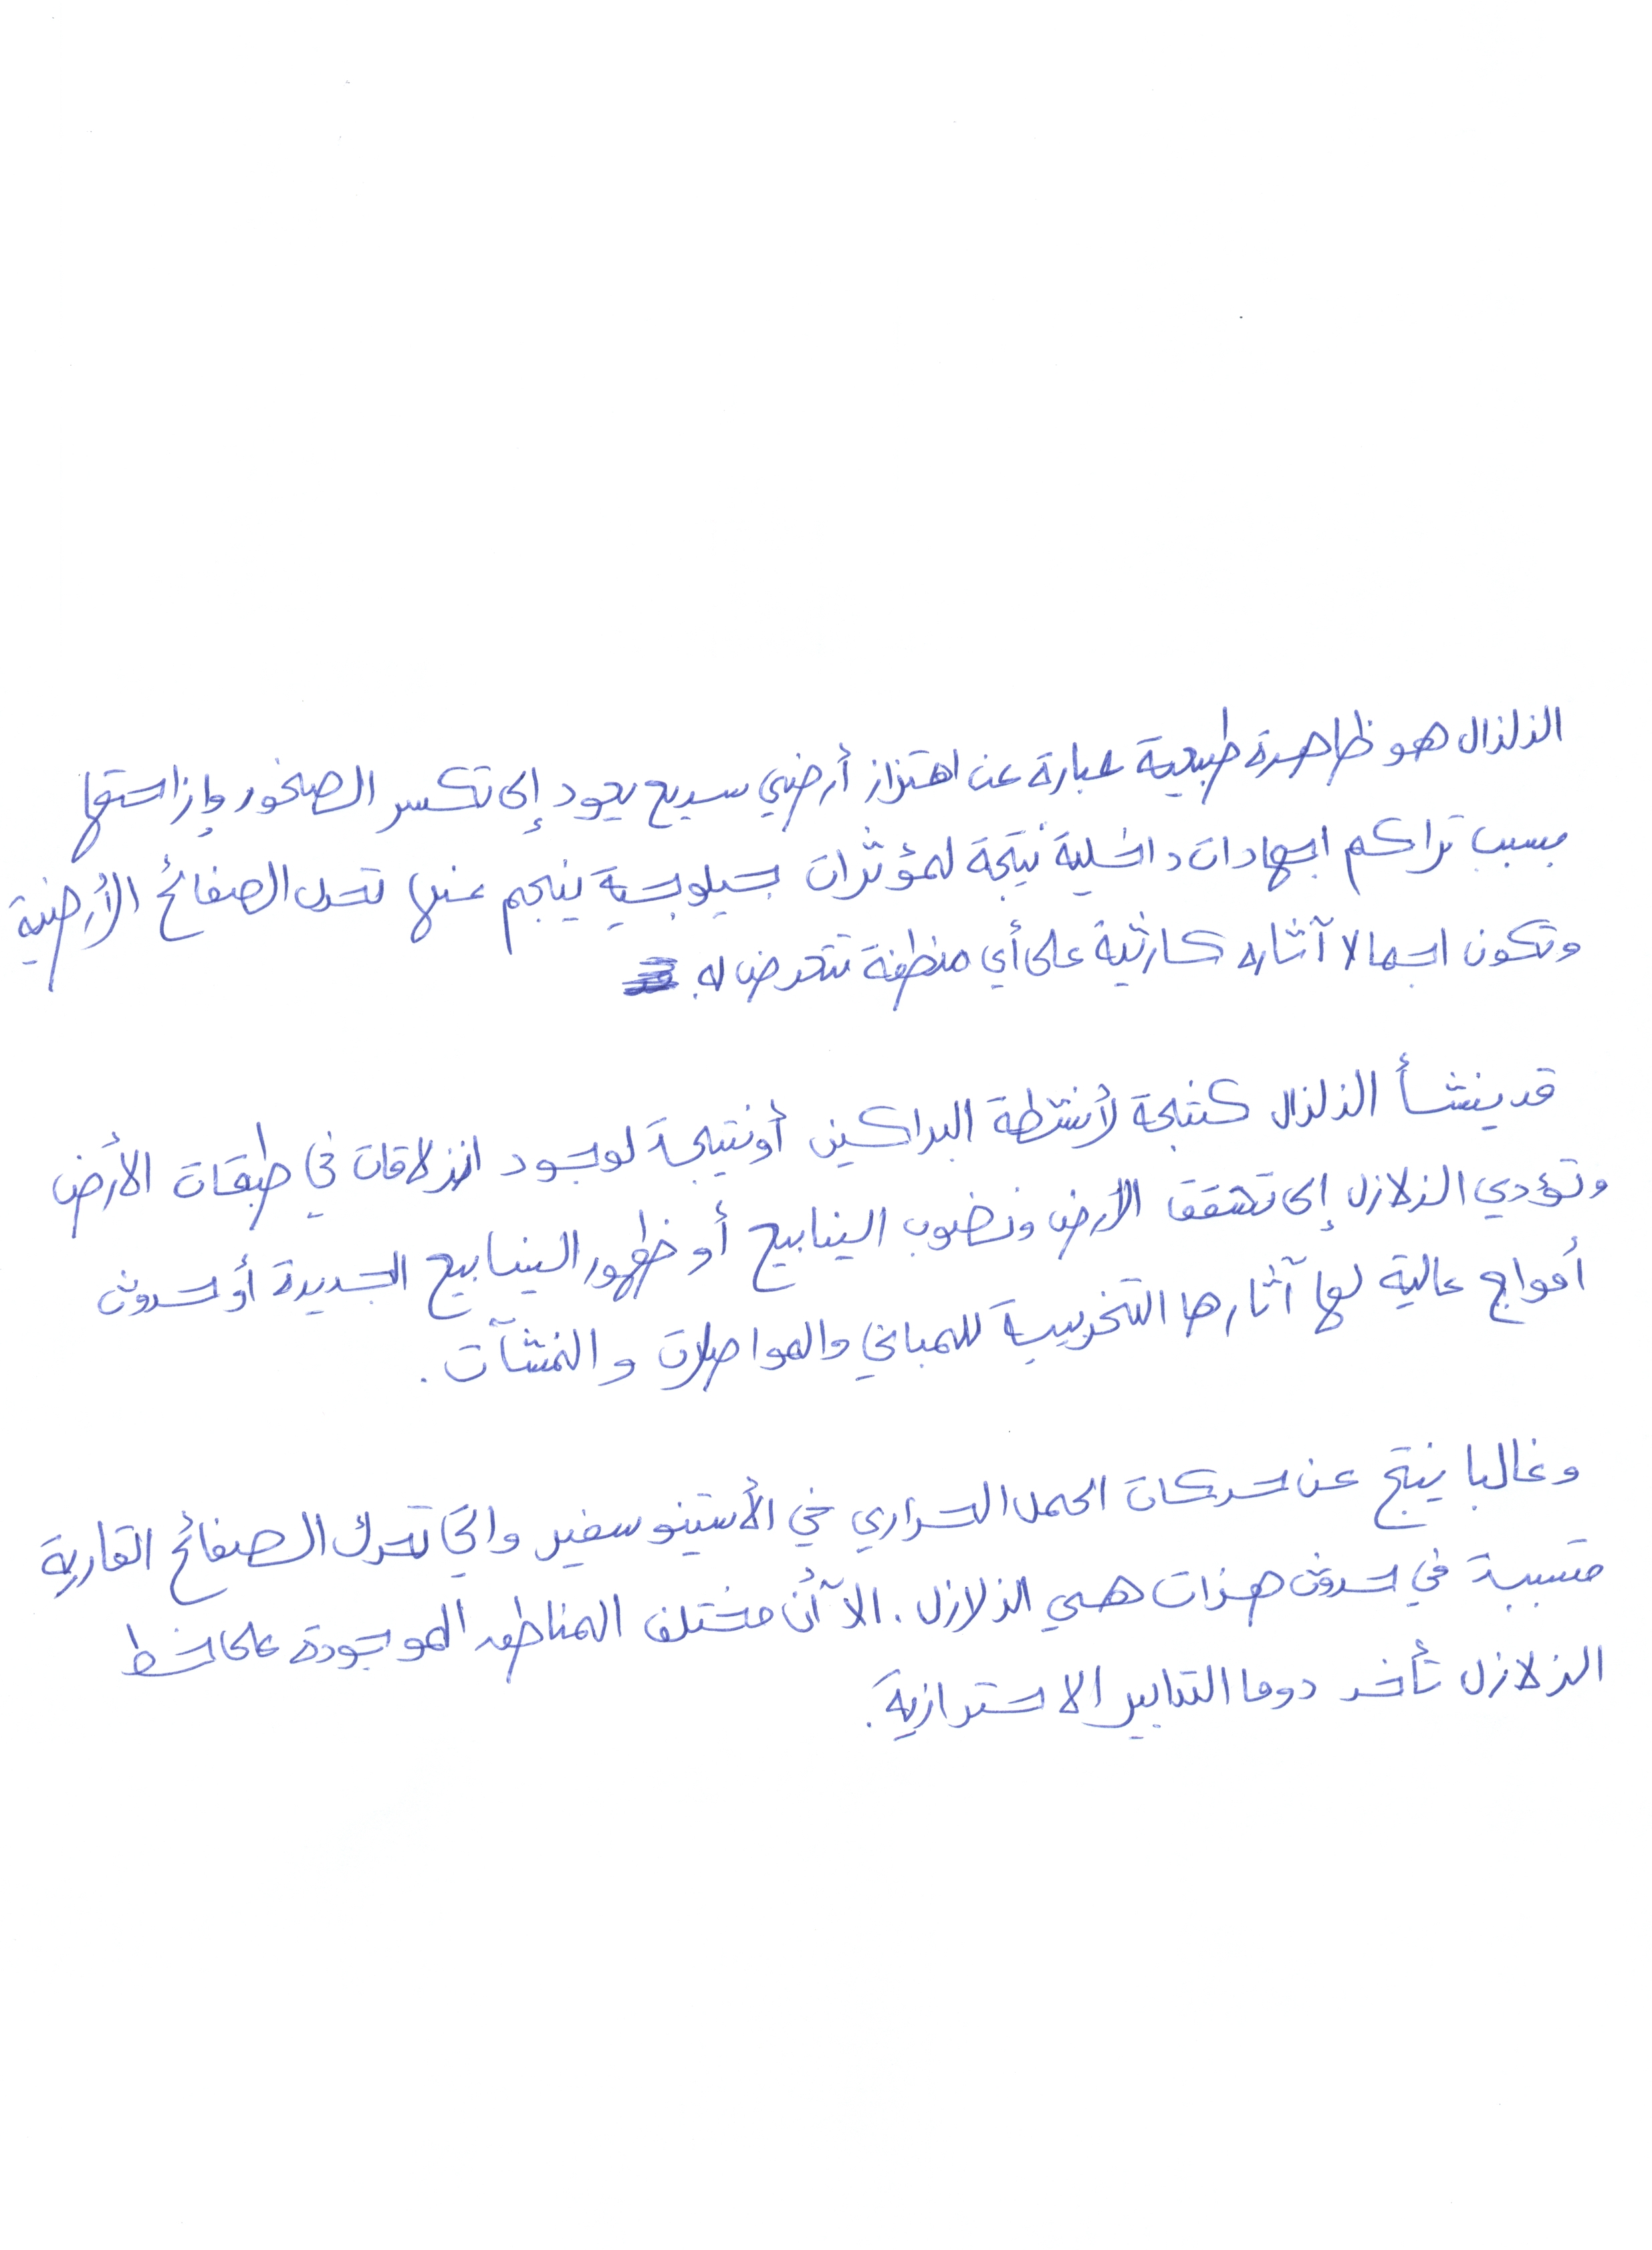 الزلزال هو ظاهرة طبيعية عبارة عن اهتزاز أرضي سريع يعود إلى تكسر الصخور وإزاحتها
بسبب تراكم اجهادات داخلية نتيجة لمؤثرات جيلوجية ينجم عنها تحرك الصفائح الأرضية
وتكون اجمالا آثاره كارثية على أي منطقة تتعرض له.
قد ينشأ الزلزال كنتيجة لأنشطة البراكين أو نتيجة لوجود انزلاقات في طبقات الأرض
وتؤدي الزلازل إلى تشقق الأرض ونضوب الينابيع أو ظهور الينابيع الجديدة أو حدوث
أمواج عالية لها آثارها التخريبية للمباني والمواصلات والمنشآت.
وغالبا ينتج عن حركات الحمل الحراري في الأستينوسفير والتي تحرك الصفائح القارية
متسببة في حدوث هزات هي الزلازل. الا أن مختلف المناطق الموجودة على خط
الزلازل تأخد دوما التدابير الاحترازية.